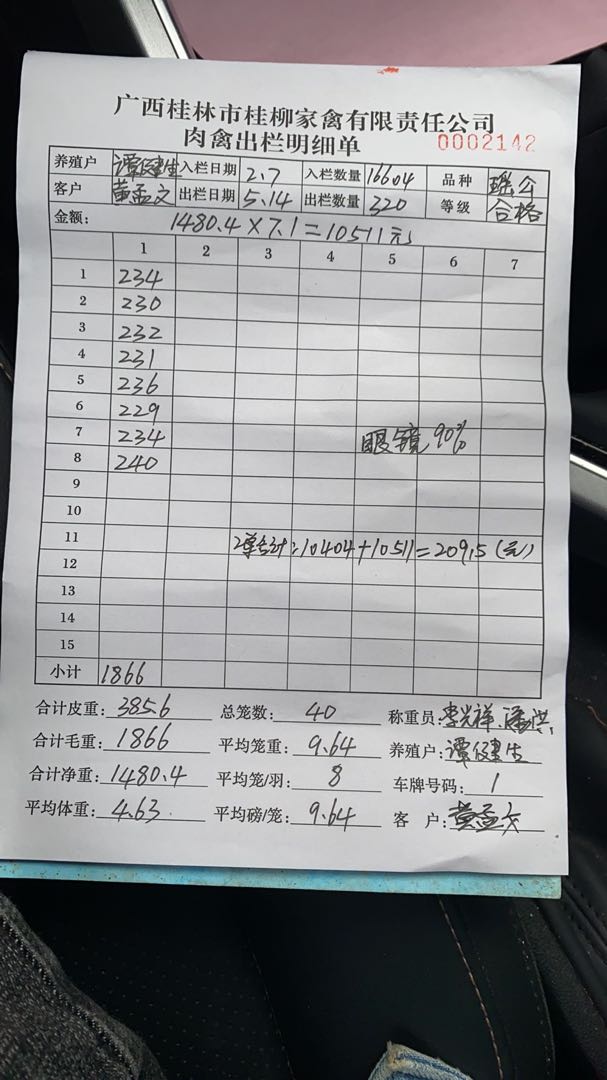 广西桂林市桂柳家禽有限责任公司
肉禽出栏明细单 0002142
养殖户 谭健生 入栏日期 2.7 入栏数量 16604 品种 瑶公
客户 黄孟文 出栏日期 5.14 出栏数量 320 等级 合格
金额: 1480.4×7.1=10511元
1 2 3 4 5 6 7
1 234
2 230
3 232
4 231
5 236
6 229
7 234 眼镜90%
8 240
9
10
11 2单合计:10404+10511=20915(元)
12
13
14
15
小计 1866
合计皮重: 385.6 总笼数: 40 称重员: 李光祥
合计毛重: 1866 平均笼重: 9.64 养殖户: 谭健生
合计净重: 1480.4 平均笼/羽: 8 车牌号码: 1
平均体重: 4.63 平均磅/笼: 9.64 客户: 黄孟文